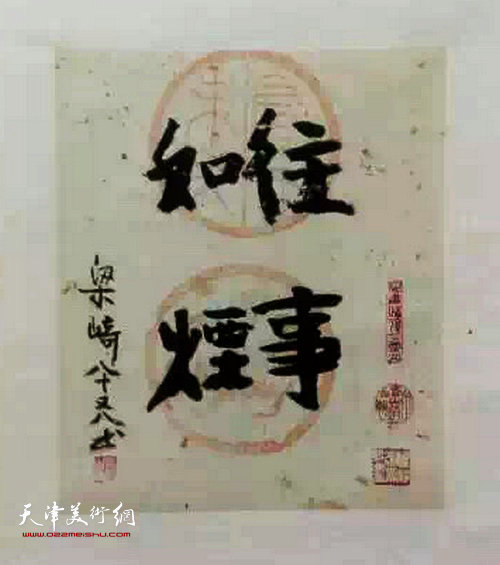 往事
如煙
梁崎八十又八书
天津美術網
www.022meishu.com